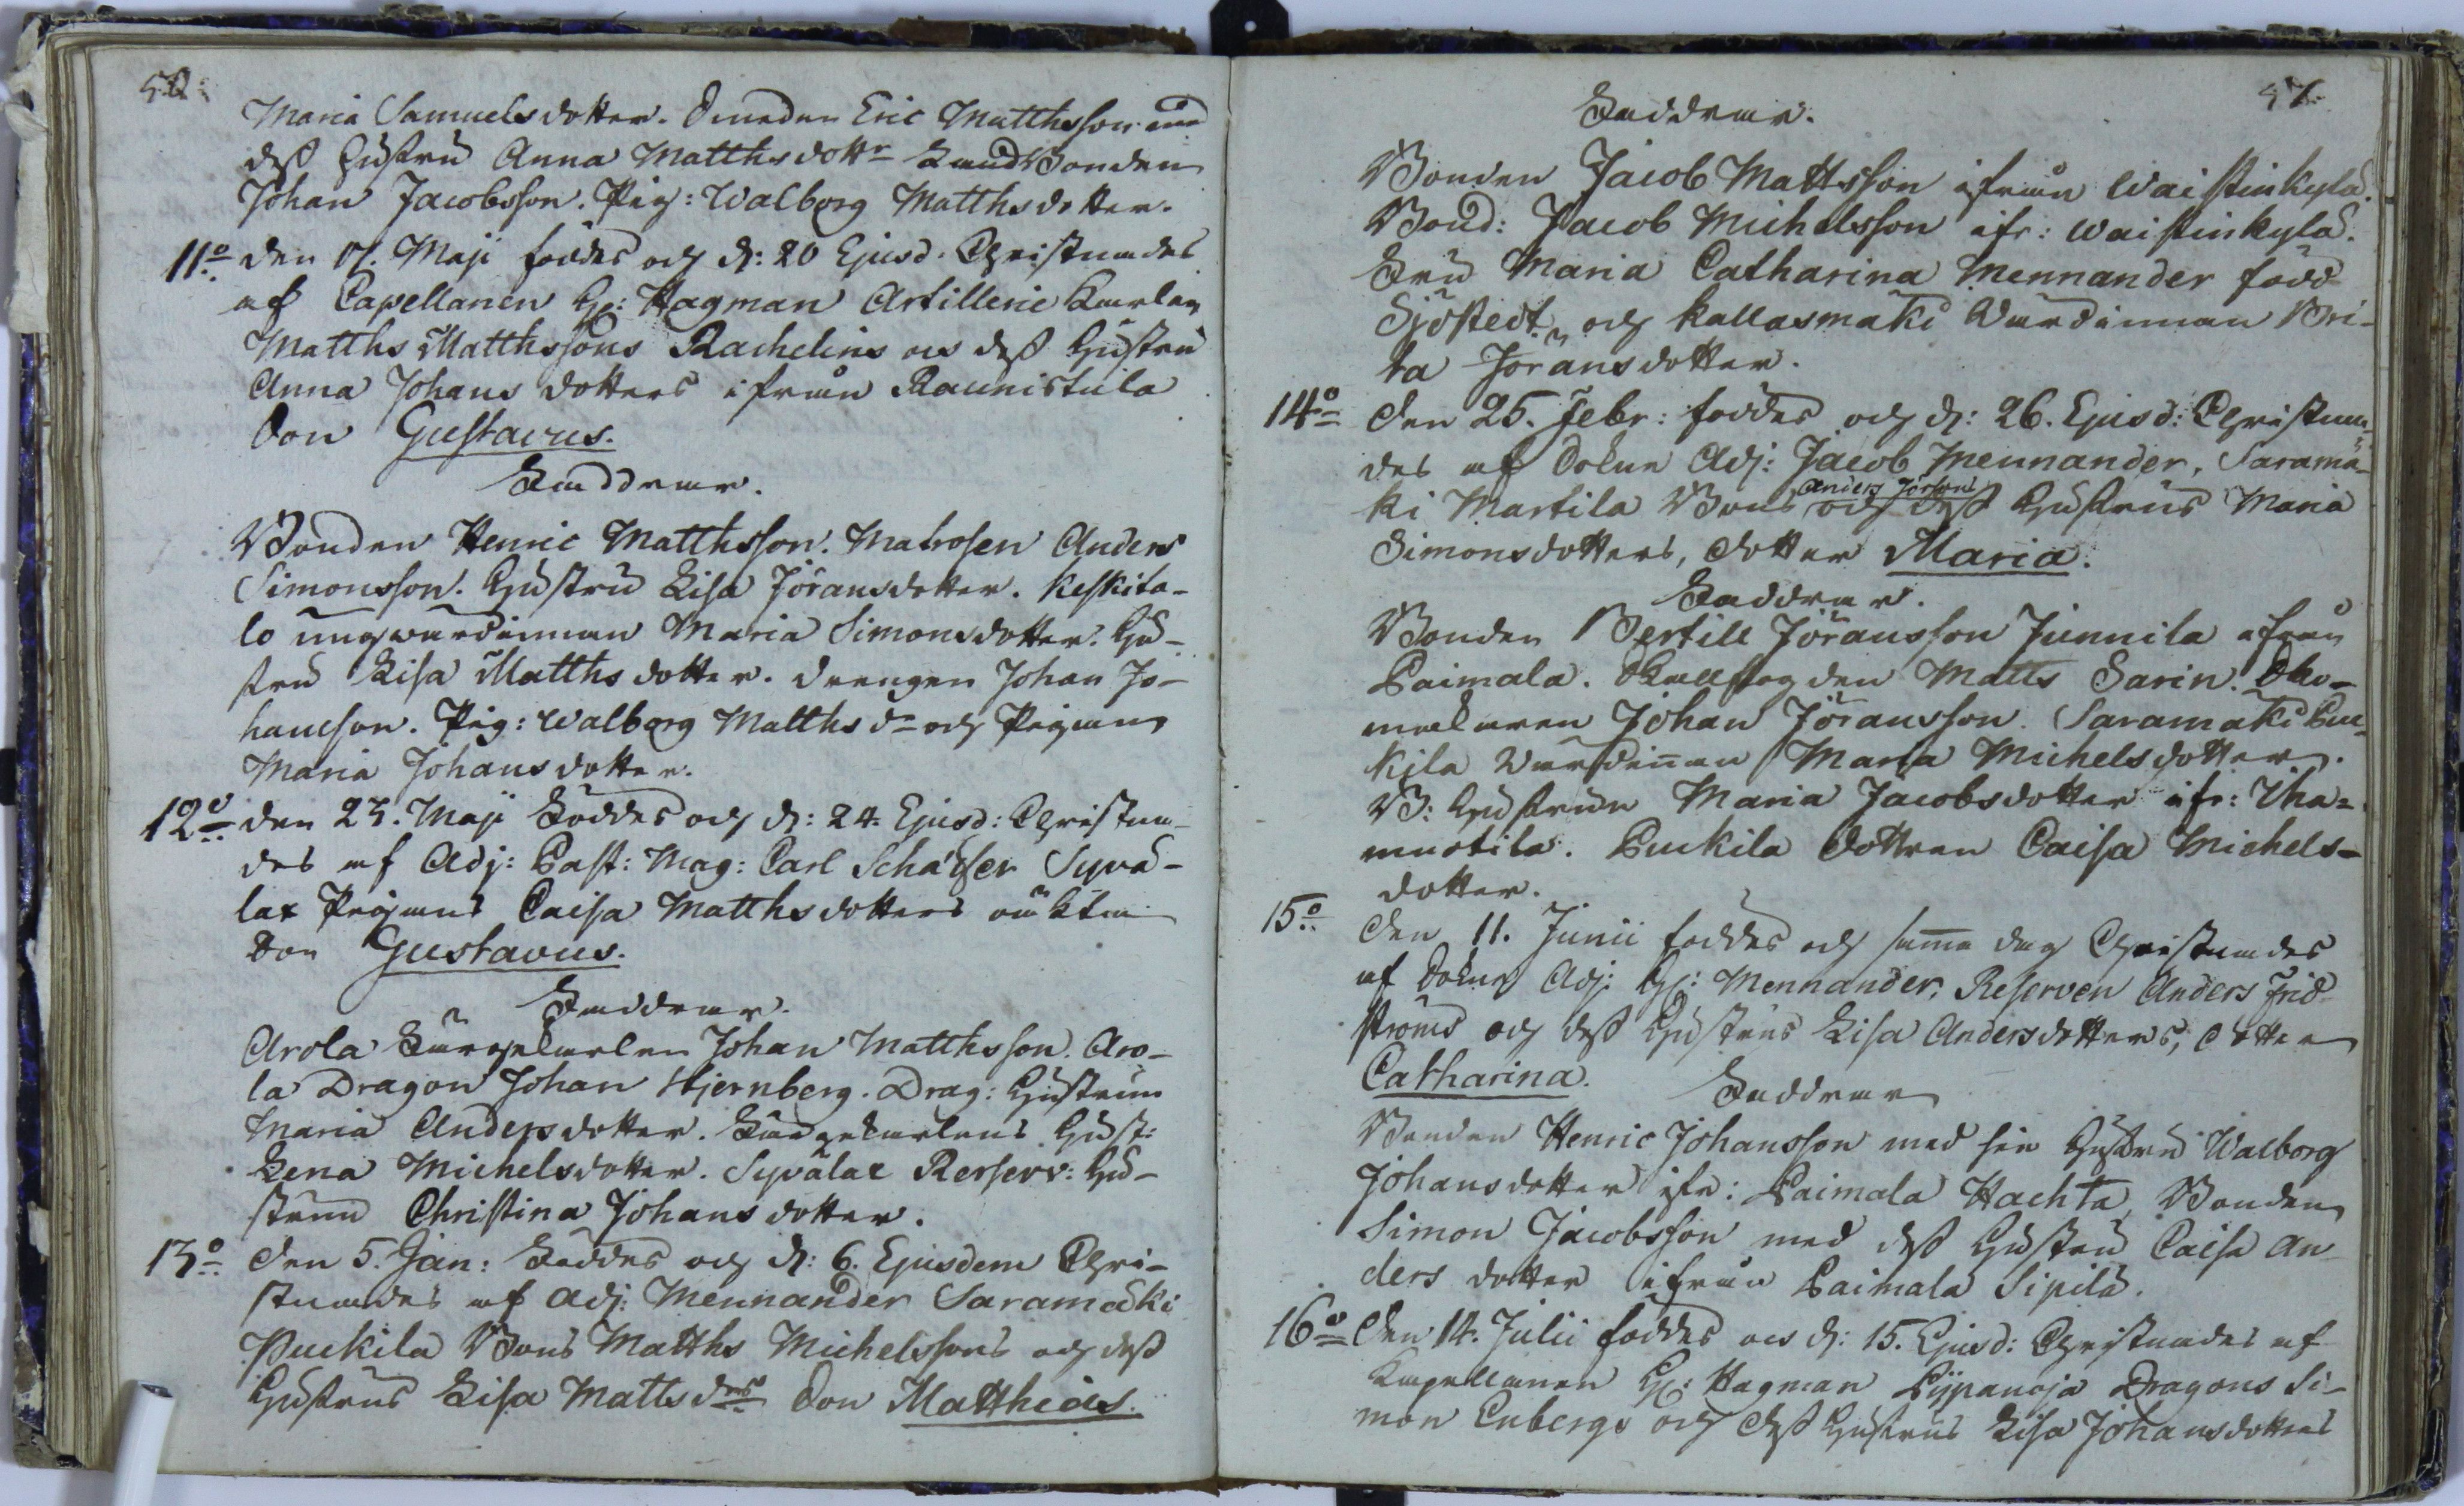 Maria Samuelsdotter. Smeden Eric Matthsson med
dess Hustru Anna Matthsdottr LandBonden
Johan Jacobsson. Pig: Walborg Matthsdotter.
11:o den 17. Maji föddes och d: 20 Ejusd. Christnades
af Capellanen H: Hagman Artillerie Karlen
Matths Matthssons Rachelins och dess Hustru
Anna Johans dotters ifrån Raunistula
Son Gustavus.
Faddrar.
Bonden Henric Matthsson. Matrosen Anders
Simonsson. Hustru Lisa Jöransdotter. Keskita-
lo ungwärdinnan Maria Simonsdotter. Hu-
stru Lisa Matthsdotter. Drengen Johan Jo-
hansson. Pig: Walborg Matths dr och Pigan
Maria Johansdotter.
12:o den 23. Maji Föddes och d: 24. Ejusd: Christna-
des af Adj: Past: Mag: Carl Schäffer Syvä-
lax Pigans Caisa Matthsdotters oäkta
Son Gustavus.
Faddrar.
Arola Länge Karlen Johan Matthsson. Aro-
la Dragon Johan Stjernberg. Drag: Hustrun
Maria Andersdotter. Hust:
Lena Michelsdotter. Syvälax Reserv: Hu-
strun Christina Johansdotter.
13:o den 5. Jan: Föddes och d: 6. Ejusdem Chri-
stnades af Adj: Mennander Saramäki
Puckila Bons Matths Michelssons och dess
Hustrus Lisa Matts drs Son Matthias.
47.
Faddrar.
Bonden Jacob Mattsson ifrån Waistinkylä.
Bond: Jacob Michelsson ifr: Waistinkylä.
Fru Maria Catharina Mennander född
Sjöstedt, och Kallasmäki Wärdinnan Bri-
ta Jöransdotter.
14:o den 25. Febr: föddes och d: 26. Ejusd: Christna-
des af Sokne Adj: Jacob Mennander, Saramä-
ki Martila Bons Anders Jörsons och dess Hustrus Maria
Simonsdotters, dotter Maria.
Faddrar.
Bonden Bertill Jöransson Junnila ifrån
Paimala. Matts Sarin. Sko-
makaren Johan Jöransson. Saramäki Puc-
kila Wärdinnan Maria Michelsdotter.
B: Hustrun Maria Jacobsdotter ifr: Iha-
muotila. Puckila dottren Caisa Michels-
dotter.
15:o den 11. Junii föddes och samma dag Christnades
af Sokne Adj: H: Mennander, Reserven Anders Frid-
ströms och dess Hustrus Lisa Andersdotters, dotter
Catharina.
Faddrar
Bonden Henric Johansson med sin Hustru Walborg
Johansdotter ifr: Paimala Hachta, Bonden
Simon Jacobsson med dess Hustru Caisa An-
ders dotter ifrån Paimala Sipilä.
16:o den 14. Julii föddes och d: 15. Ejusd: Christnades af
Kapellanen H: Hagman Pijpanoja Dragons Si-
mon Enbergs och dess Hustrus Lisa Johansdotters